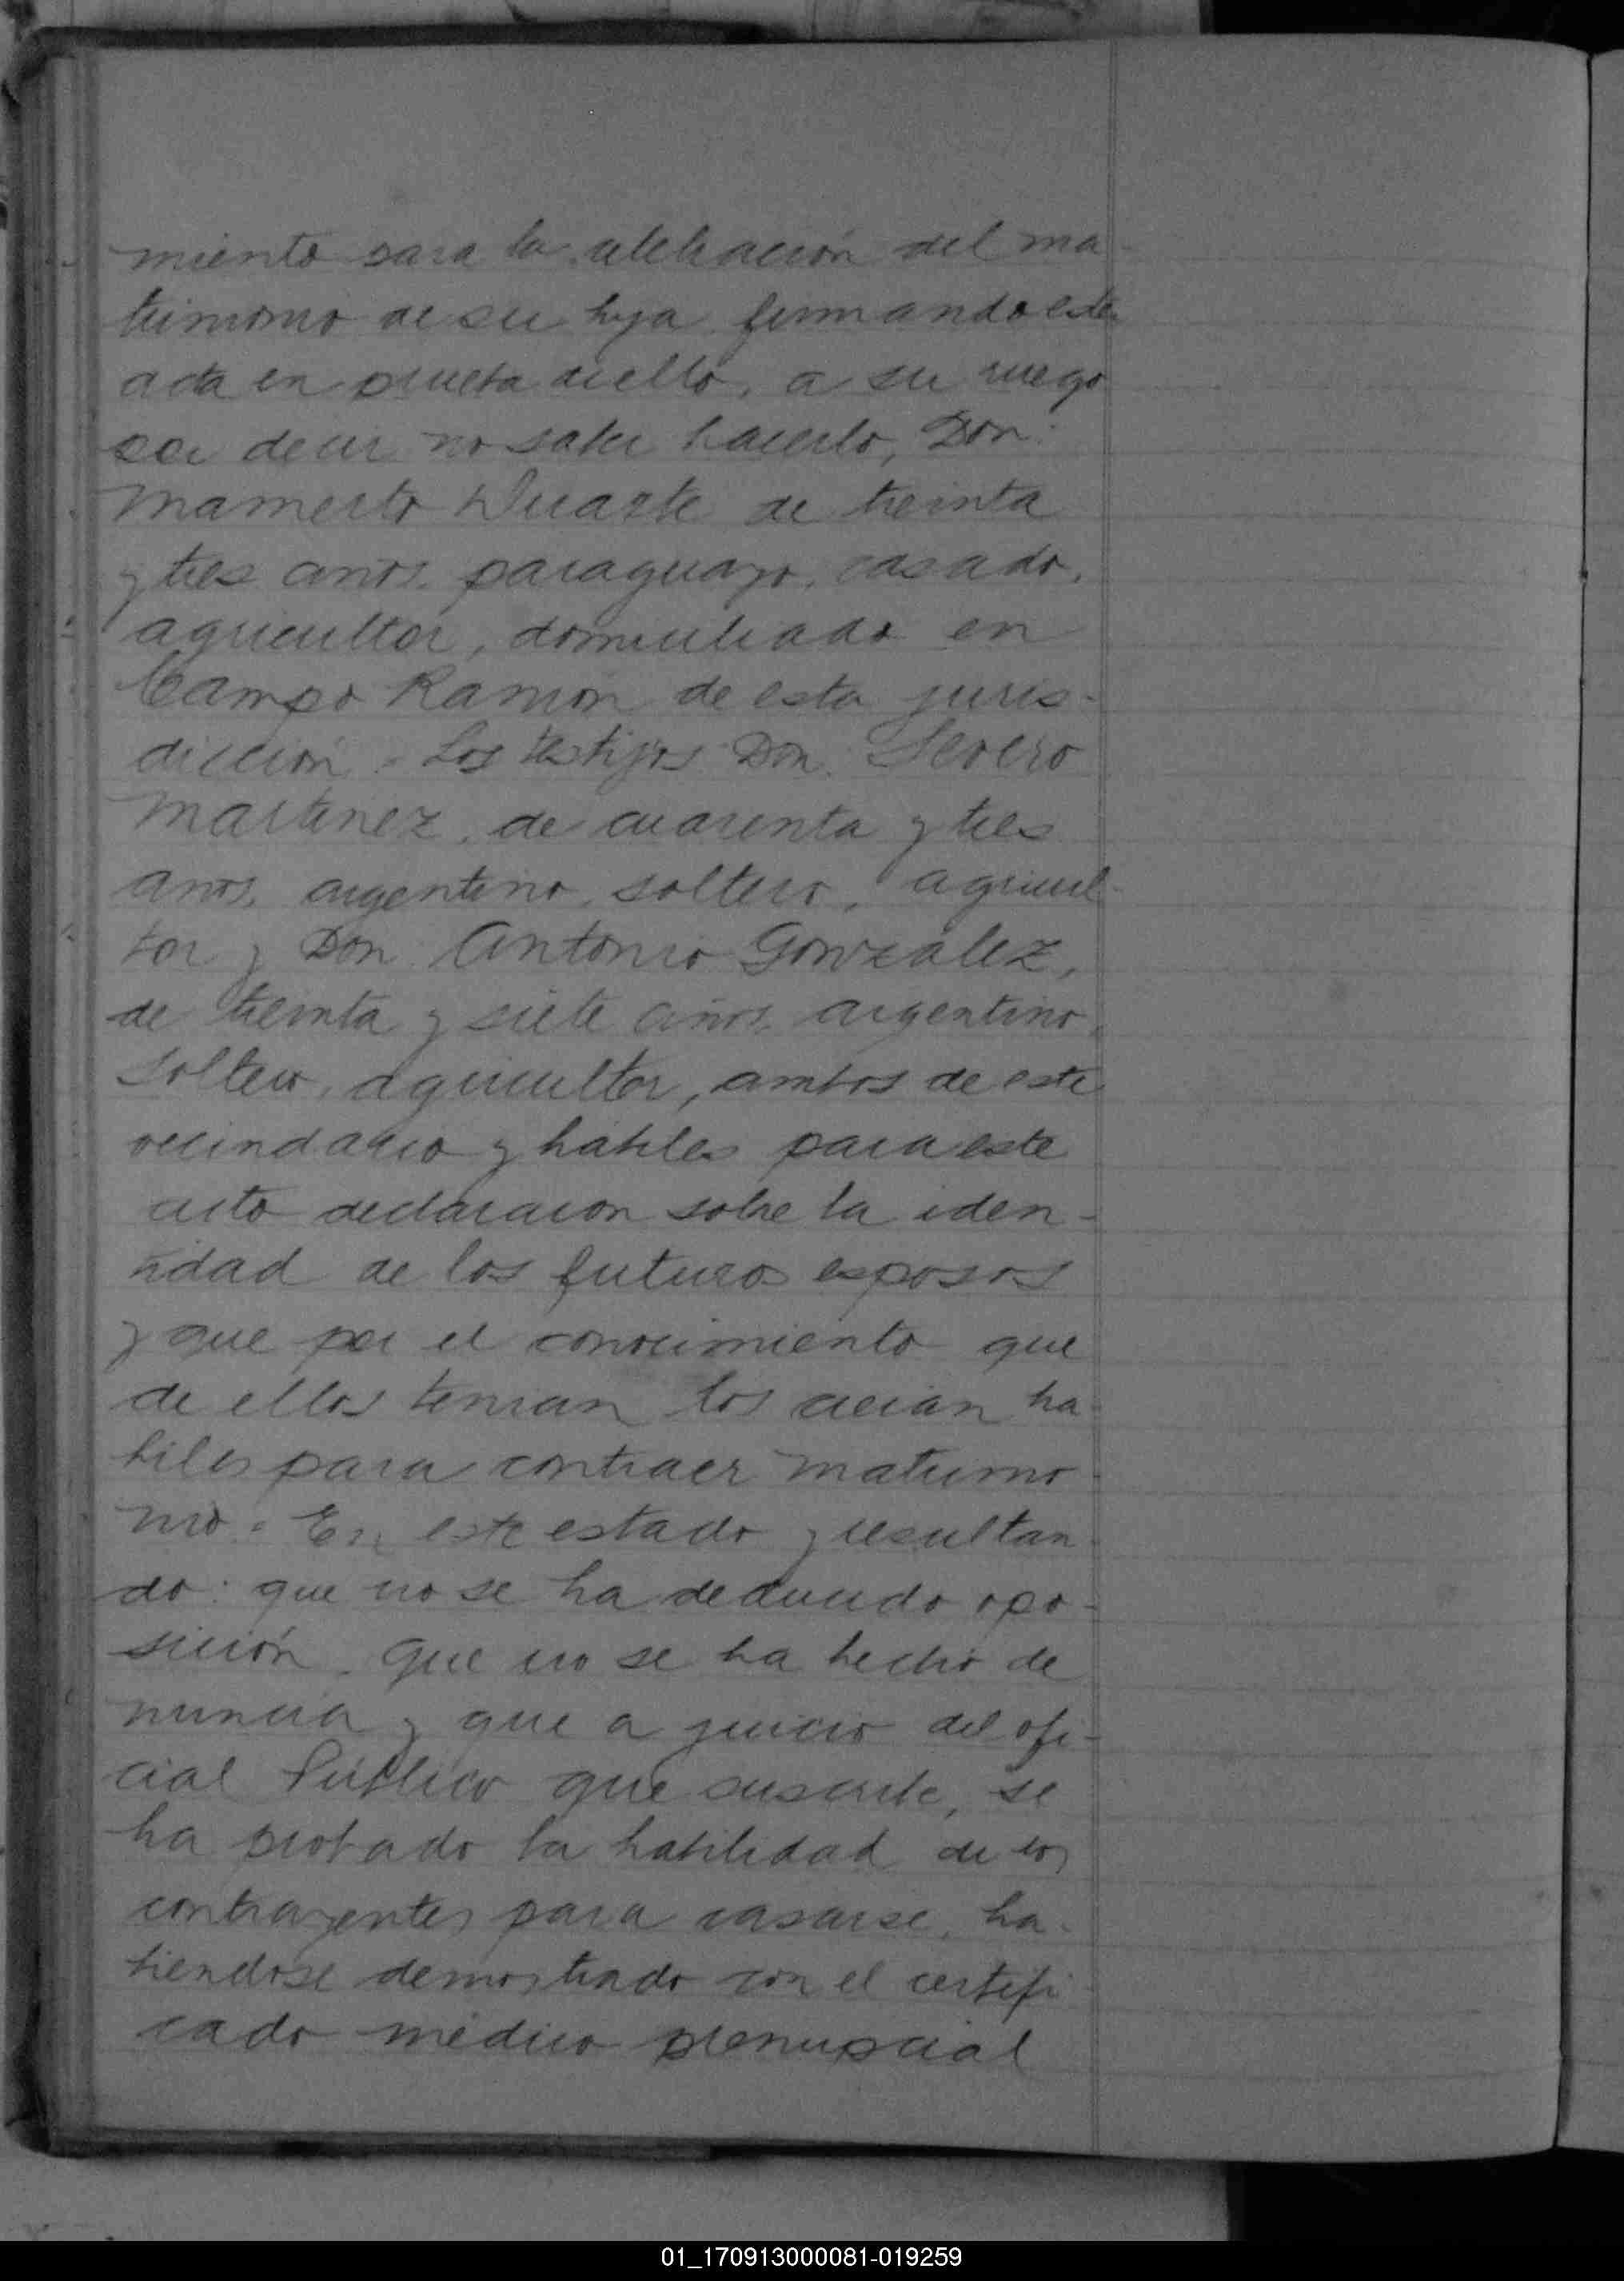 miento para la celebración del ma-
trimonio de su hija firmando esta
acta en prueba de ello, a su ruego
por decir no saber hacerlo, Don:
Mamerto Duarte de treinta
y tres años, paraguayo, casado,
agricultor, domiciliado en
Campo Ramón de esta juris-
dicción. = Los testigos Don. Severo
Martinez, de cuarenta y tres
años, argentino, soltero, agricul-
tor y Don Antonio González,
de treinta y siete años, argentino,
soltero, agricultor, ambos de este
vecindario y hábiles para este
acto declararon sobre la iden-
tidad de los futuros esposos
y que por el conocimiento que
de ellos tenian los creian ha-
biles para contraer matrimo-
nio. = En este estado y resultan-
do: que no se ha deducido opo-
sición, que no se ha hecho de
nuncia y que a juicio del ofi-
cial Público que suscribe, se
ha probado la habilidad de los
contrayentes para casarse, ha-
biendose demostrado con el certifi-
cado médico prenupcial
01_170913000081-019259